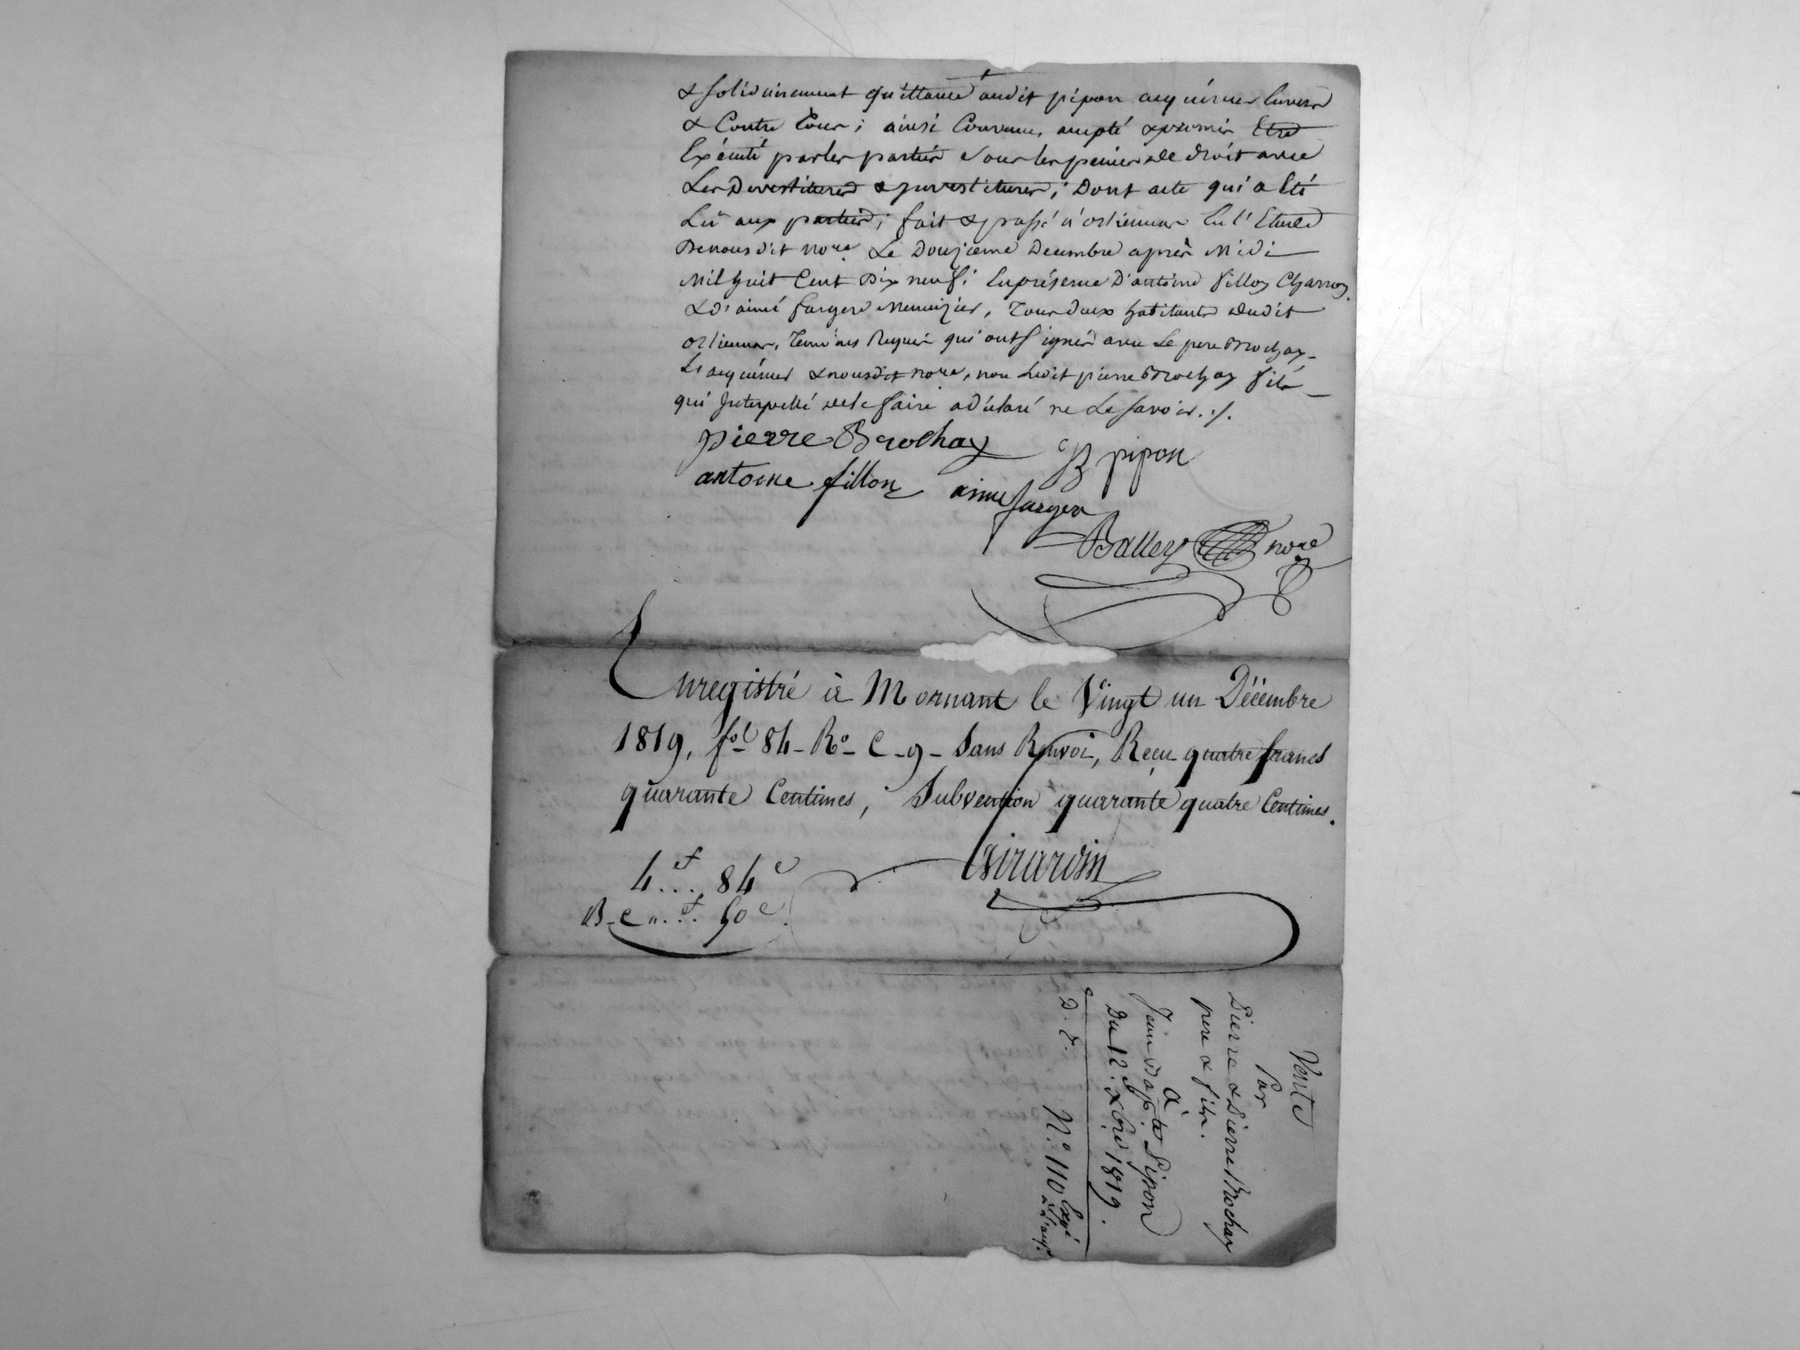 & solidairement quittance audit pipon acquéreur Envers
& Contre tous; ainsi Convenu, accepté & promis Etre
Exécuté par les parties sous les peines de droit avec
Les Devestitures & investitures; Dont acte qui a Eté
Lû aux parties; fait & passé à orlienas En l'Etude
De nous dit nore. Le Douzieme Decembre après Midi
Mil huit Cent Dix neuf; En présence D'antoine fillon Charron
& D'aimé farges Menuizier, Tous deux habitants dudit
orlienas, Temoins Requis qui ont signés avec Le pere Brochay
L'acquéreur & nous dit nore, non Ledit pierre Brochay fils
qui Interpellé de le faire a déclaré ne Le savoir ./.
pierre Brochay JB pipon
antoine fillon aimé farges
Balley nore
Enregistré à Mornant le Vingt un Décembre
1819, fol 84 Ro C 9 Sans Renvoi, Reçu quatre francs
quarante Centimes, Subvention quarante quatre Centimes.
Girardin
4 f... 84 c
B. C ".. f. 50 c.
Vente
Par
Pierre & Pierre Brochay
pere & fils.
à
Jean Bapte Pipon
Du 12. Xbre 1819.
D. E. No. 110 Expé